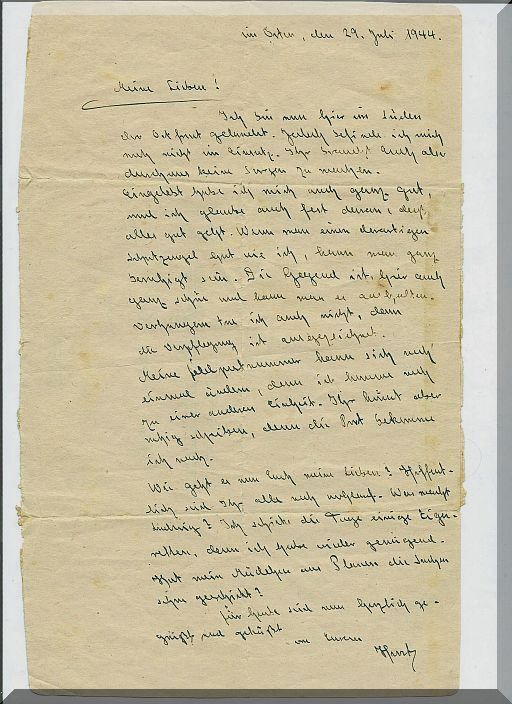 im Osten, den 29. Juli 1944.
Meine Lieben!
Ich bin nun hier im Süden
der Ostfront gelandet. Jedoch befinde ich mich
noch nicht im Einsatz. Ihr braucht Euch also
durchaus keine Sorgen zu machen.
Eingelebt habe ich mich auch ganz gut,
und ich glaube auch fest daran, daß
alles gut geht. Wenn man einen derartigen
Schutzengel hat wie ich, kann man ganz
beruhigt sein. Die Gegend ist hier auch
ganz schön und kann man es aushalten.
Verhungern tue ich auch nicht, denn
die Verpflegung ist ausgezeichnet.
Meine Feldpostnummer kann sich noch
einmal ändern, denn ich komme noch
zu einer anderen Einheit. Ihr könnt aber
ruhig schreiben, denn die Post bekomme
ich nach.
Wie geht es nun Euch meine Lieben? Hoffent-
lich seid Ihr alle noch wohlauf. Was macht
Ludwig? Ich schicke die Tage einige Ziga-
retten, denn ich habe wieder genügend.
Hat mein Mädchen aus Plauen die Sachen
schon geschickt?
Für heute seid nun herzlich ge-
grüßt und geküßt
von Eurem
Horst